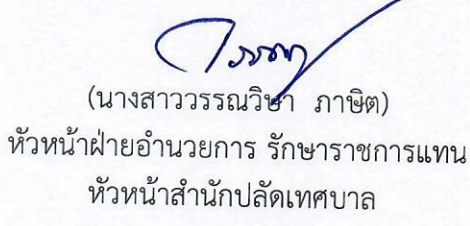 (นางสาววรรณวิษา ภาษิต)
หัวหน้าฝ่ายอำนวยการ รักษาราชการแทน
หัวหน้าสำนักปลัดเทศบาล